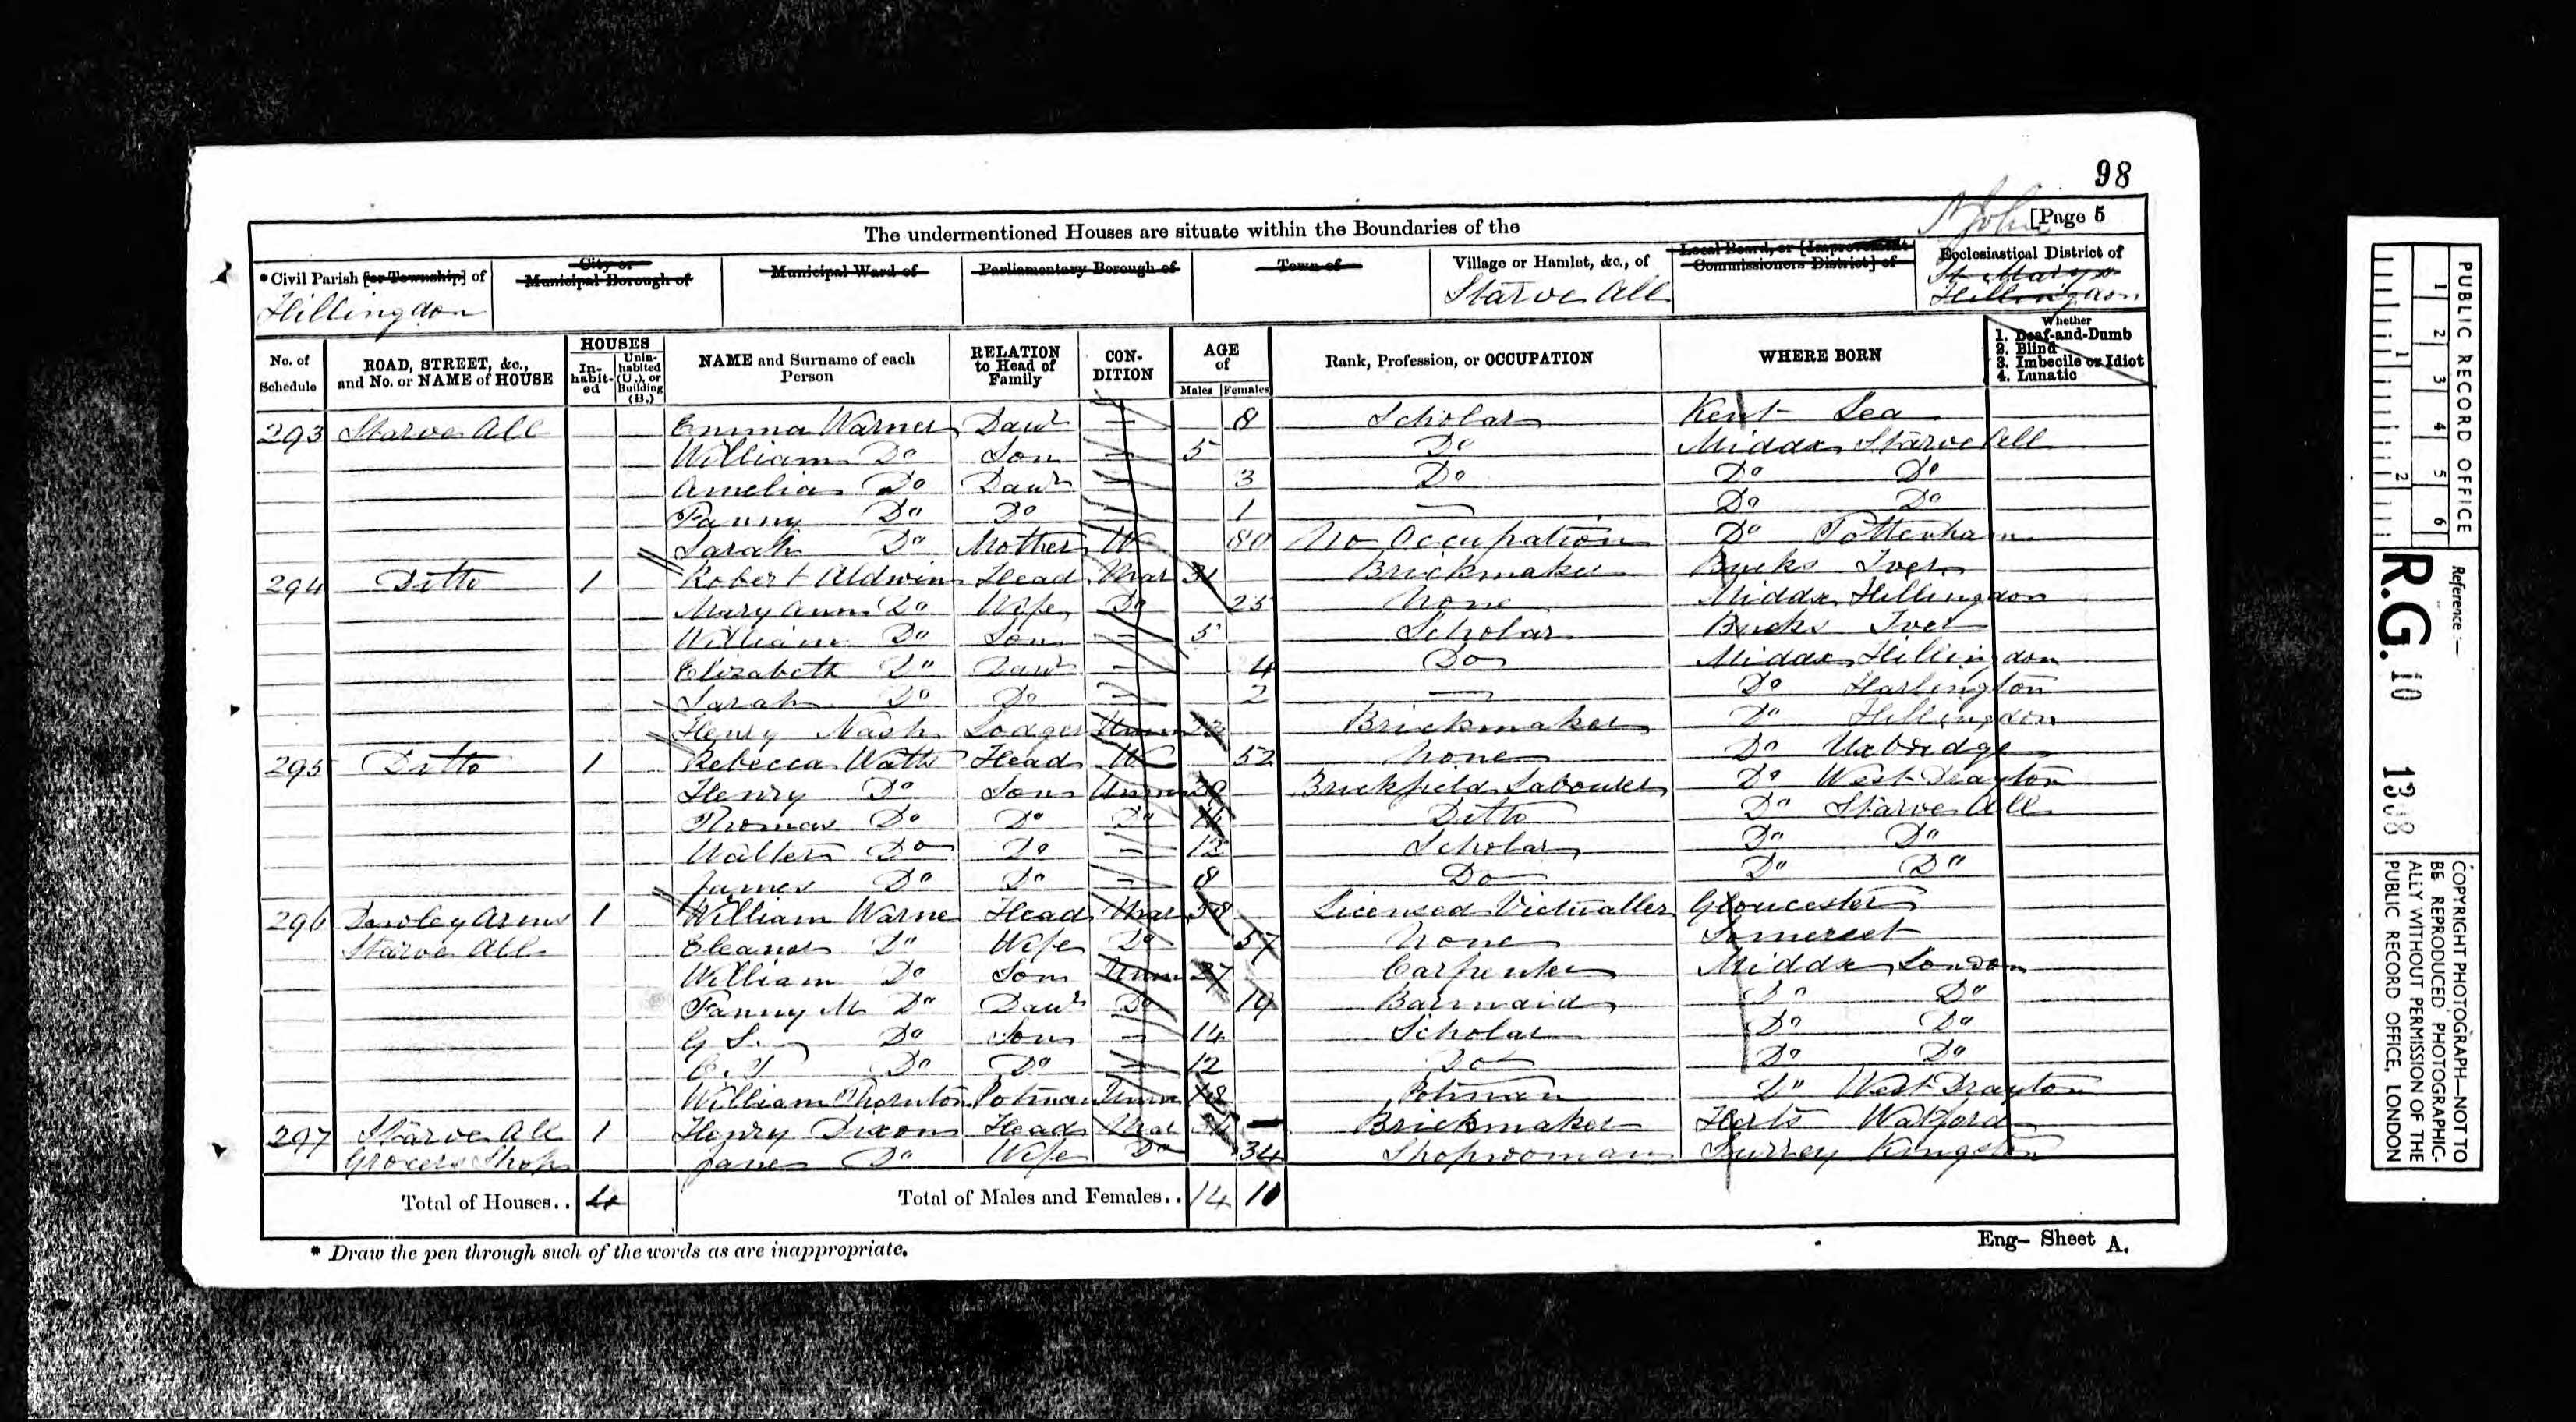 98
St John
[Page 5
The undermentioned Houses are situate within the Boundaries of the
*Civil Parish [or Township] of Hillingdon
City or Municipal Borough of
Municipal Ward of
Parliamentary Borough of
Town of
Village or Hamlet, &c., of Starve All
Local Board, or [Improvement Commissioners District] of
Ecclesiastical District of St Marys Hillingdon
No. of Schedule
ROAD, STREET, &c., and No. or NAME of HOUSE
HOUSES
In-habit-ed
Unin-habited (U.), or Building (B.)
NAME and Surname of each Person
RELATION to Head of Family
CON-DITION
AGE of
Males Females
Rank, Profession, or OCCUPATION
WHERE BORN
Whether
1. Deaf-and-Dumb
2. Blind
3. Imbecile or Idiot
4. Lunatic
293 Starve All Emma Warner Daur — 8 Scholar Kent Lea
William Do Son — 5 Do Middx Starve All
Amelia Do Daur — 3 Do Do Do
Fanny Do Do — 1 — Do Do
Sarah Do Mother W 80 No Occupation Do Tottenham
294 Ditto 1 Robert Aldwin Head Mar 31 Brickmaker Bucks Iver
Mary Ann Do Wife Do 25 None Middx Hillingdon
William Do Son — 5 Scholar Bucks Iver
Elizabeth Do Daur — 4 Do Middx Hillingdon
Sarah Do Do — 2 — Do Harlington
Henry Nash Lodger Unm Brickmaker Do Hillingdon
295 Ditto 1 Rebecca Watts Head W 52 None Do Uxbridge
Henry Do Son Unm 20 Brickfield Labourer Do West Drayton
Thomas Do Do Do Ditto Do Starve All
Walter Do Do — 12 Scholar Do Do
James Do Do — 8 Do Do Do
296 Dawley Arms 1 William Warne Head Mar 58 Licensed Victualler Gloucester
Starve All Eleanor Do Wife Do 57 None Somerset
William Do Son Unm 27 Carpenter Middx London
Fanny M Do Daur Do 19 Barmaid Do Do
G S. Do Son — 14 Scholar Do Do
C. J Do Do — 12 Do Do Do
William Thornton Potman Unm 18 Potman Do West Drayton
297 Starve All 1 Henry Dixon Head Mar — Brickmaker Herts Watford
Grocers Shop Jane Do Wife Do 34 Shopwoman Surrey Kingston
Total of Houses.. 4 Total of Males and Females.. 14 11
* Draw the pen through such of the words as are inappropriate.
Eng- Sheet A.
PUBLIC RECORD OFFICE
1 2 3 4 5 6
1 2
Reference :-
R.G. 10 1308
COPYRIGHT PHOTOGRAPH—NOT TO BE REPRODUCED PHOTOGRAPHIC-ALLY WITHOUT PERMISSION OF THE PUBLIC RECORD OFFICE, LONDON